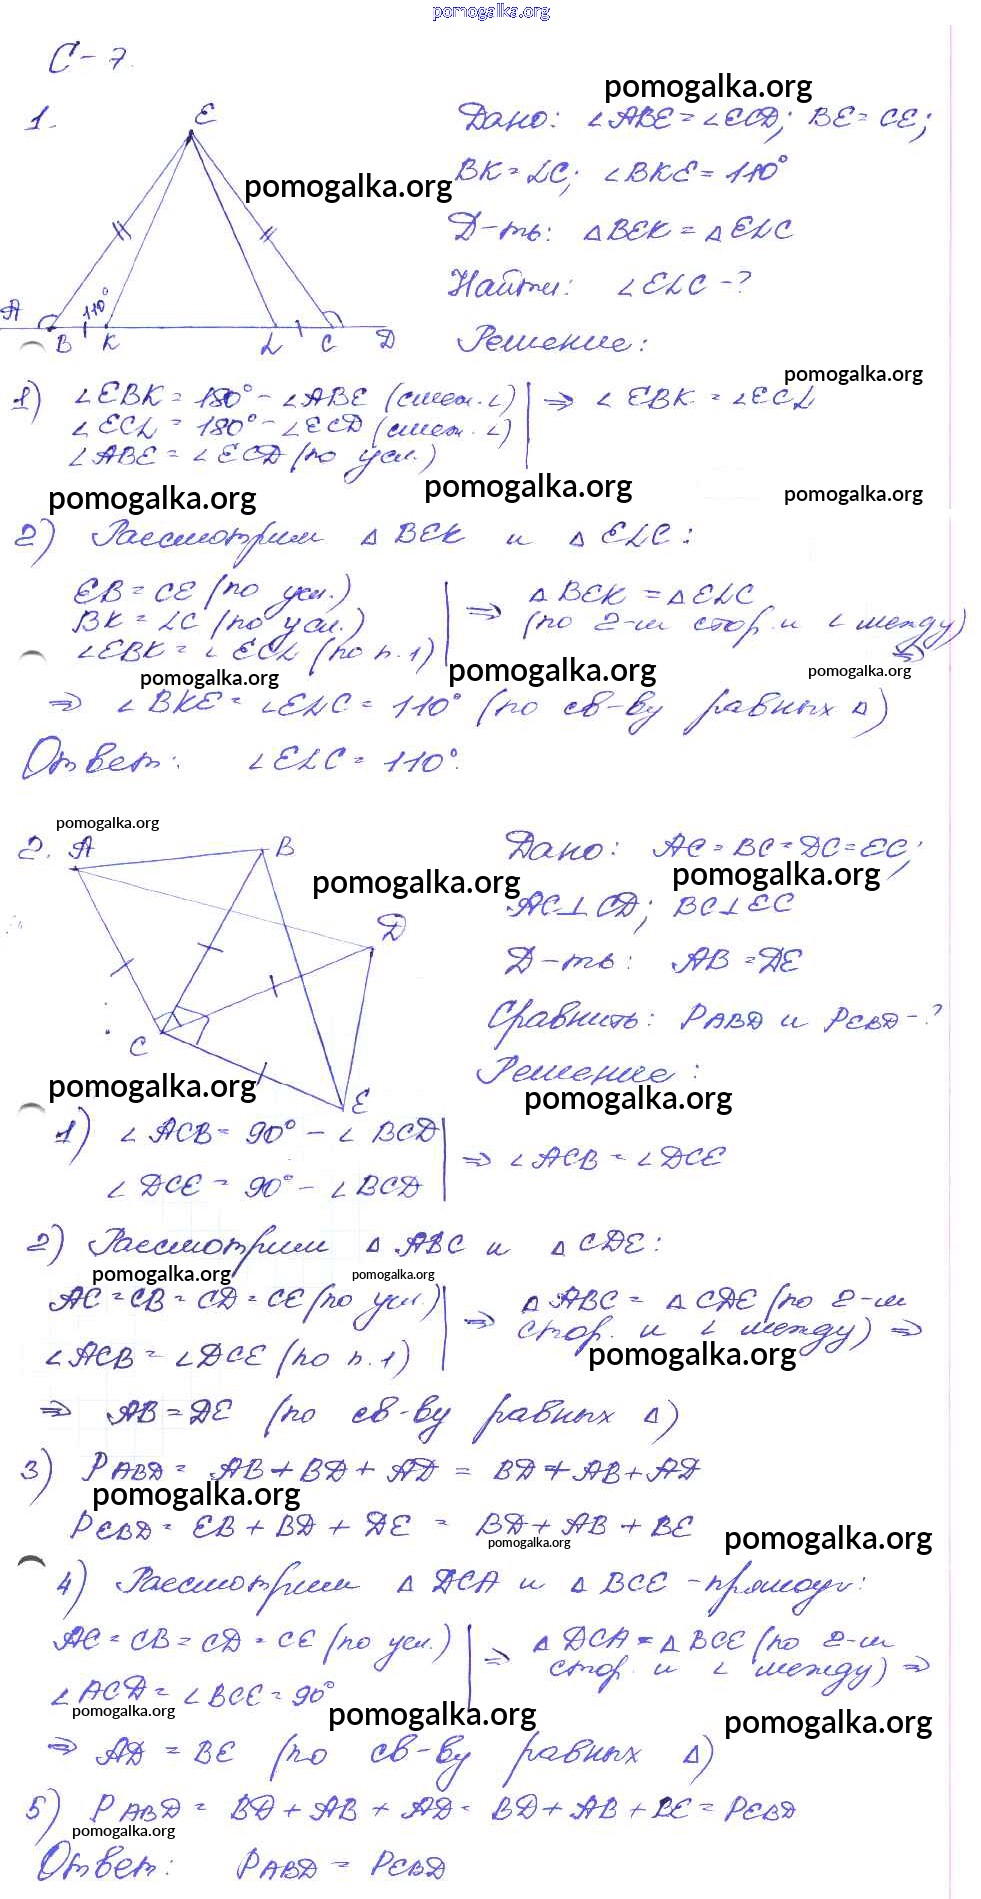 pomogalka.org
С-7.
pomogalka.org
1.
E
Дано: ∠ABE=∠ECD; BE=CE;
pomogalka.org
BK=LC; ∠BKE=110°
Д-ть: △BEK=△ELC
Найти: ∠ELC-?
110°
A B K L C D
Решение:
pomogalka.org
1) ∠EBK=180°-∠ABE (смеж.∠) ⇒ ∠EBK=∠ECL
∠ECL=180°-∠ECD (смеж.∠)
∠ABE=∠ECD (по усл.)
pomogalka.org pomogalka.org pomogalka.org
2) Рассмотрим △BEK и △ELC:
EB=CE (по усл.) ⇒ △BEK=△ELC
BK=LC (по усл.) (по 2-м стор. и ∠ между)
∠EBK=∠ECL (по п.1) ⇒
pomogalka.org pomogalka.org pomogalka.org
⇒ ∠BKE=∠ELC=110° (по св-ву равных △)
Ответ: ∠ELC=110°.
pomogalka.org
2. A B
Дано: AC=BC=DC=EC;
pomogalka.org pomogalka.org
AC⊥CD; BC⊥EC
D
Д-ть: AB=DE
Сравнить: PABD и PEBD-?
C
Решение:
pomogalka.org pomogalka.org
E
1) ∠ACB=90°-∠BCD ⇒ ∠ACB=∠DCE
∠DCE=90°-∠BCD
2) Рассмотрим △ABC и △CDE:
pomogalka.org pomogalka.org
AC=CB=CD=CE (по усл.) ⇒ △ABC=△CDE (по 2-м
стор. и ∠ между) ⇒
∠ACB=∠DCE (по п.1)
pomogalka.org
⇒ AB=DE (по св-ву равных △)
3) PABD=AB+BD+AD=BD+AB+AD
pomogalka.org
PEBD=EB+BD+DE=BD+AB+BE
pomogalka.org pomogalka.org
4) Рассмотрим △DCA и △BCE-прямоуг:
AC=CB=CD=CE (по усл.) ⇒ △DCA=△BCE (по 2-м
стор. и ∠ между) ⇒
∠ACD=∠BCE=90°
pomogalka.org pomogalka.org pomogalka.org
⇒ AD=BE (по св-ву равных △)
5) PABD=BD+AB+AD=BD+AB+BE=PEBD
pomogalka.org
Ответ: PABD=PEBD